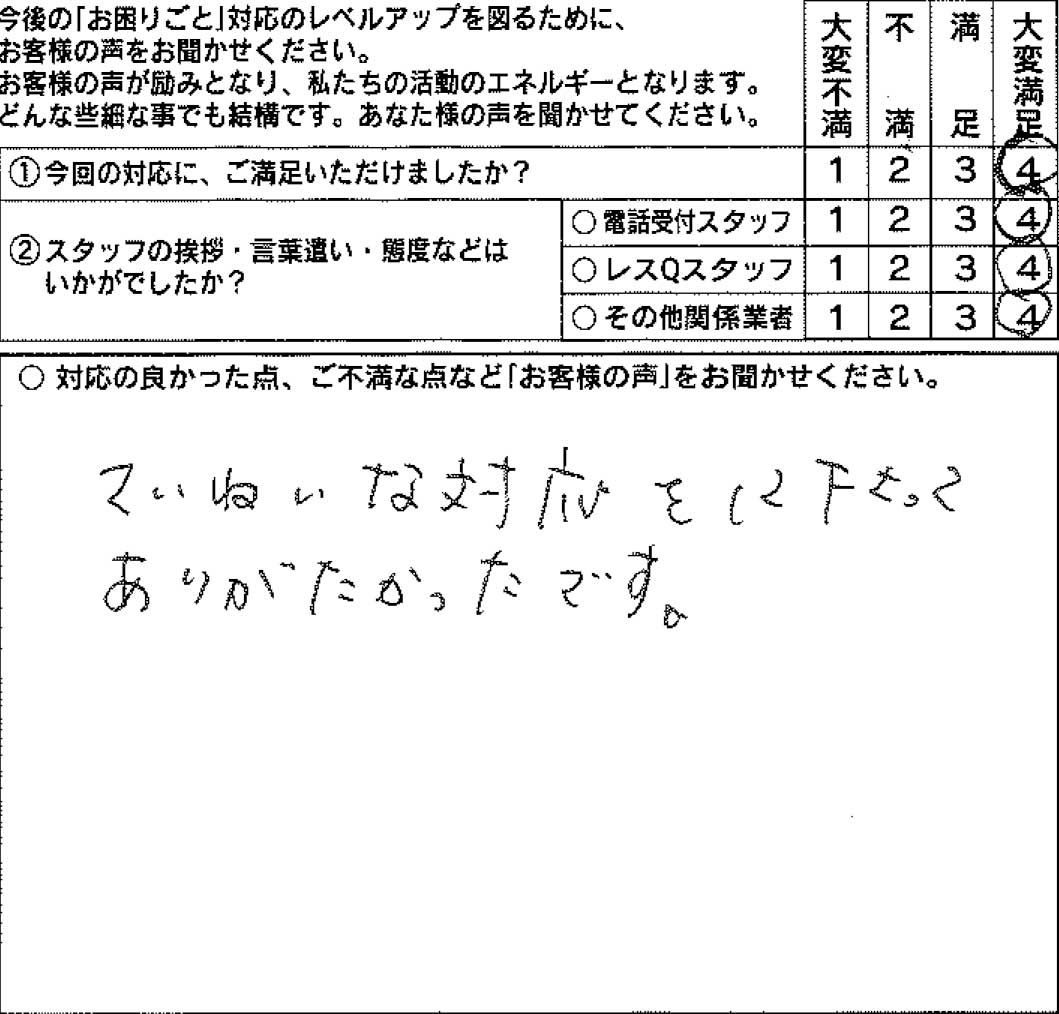 今後の「お困りごと」対応のレベルアップを図るために、
お客様の声をお聞かせください。
お客様の声が励みとなり、私たちの活動のエネルギーとなります。
どんな些細な事でも結構です。あなた様の声を聞かせてください。
大変不満 不満 満足 大変満足
①今回の対応に、ご満足いただけましたか? 1 2 3 4
②スタッフの挨拶・言葉遣い・態度などは
いかがでしたか?
○電話受付スタッフ 1 2 3 4
○レスQスタッフ 1 2 3 4
○その他関係業者 1 2 3 4
○ 対応の良かった点、ご不満な点など「お客様の声」をお聞かせください。
ていねいな対応をして下さって
ありがたかったです。